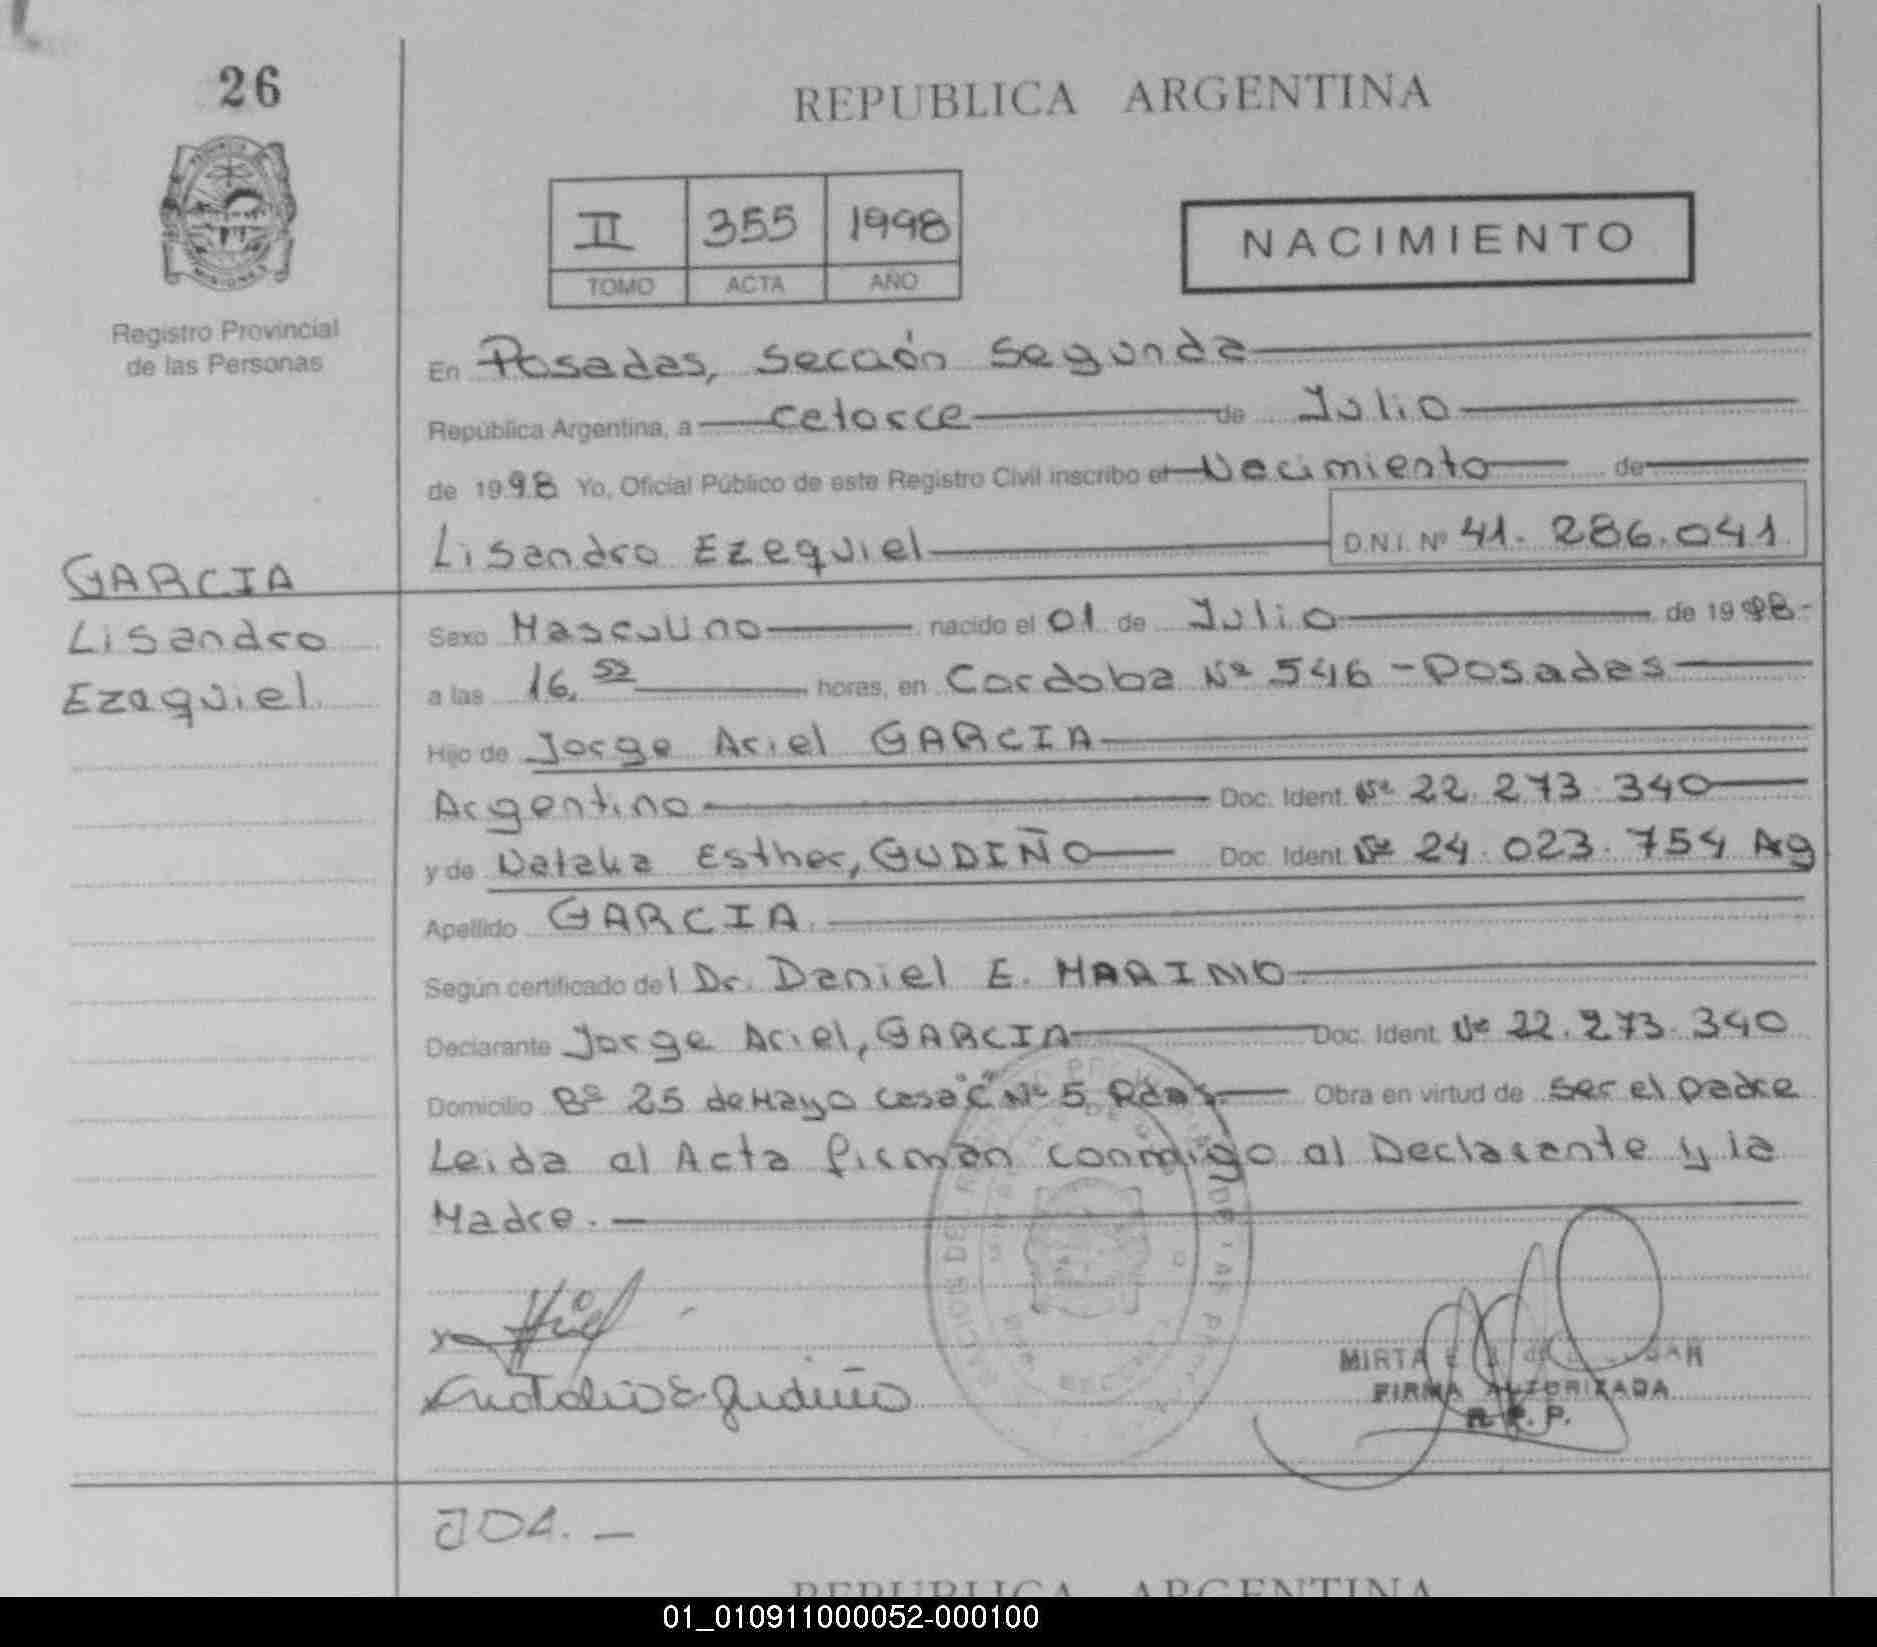 26
REPUBLICA ARGENTINA
II 355 1998
TOMO ACTA AÑO
NACIMIENTO
Registro Provincial
de las Personas
En Posadas, Sección Segunda
República Argentina, a catorce de Julio
de 1998 Yo, Oficial Público de este Registro Civil inscribo el Nacimiento de
Lisandro Ezequiel D.N.I. Nº 41.286.041
GARCIA
Lisandro
Ezequiel
Sexo Masculino nacido el 01 de Julio de 1998-
a las 16,52 horas, en Cordoba Nº 546 - Posadas
Hijo de Jorge Ariel GARCIA
Argentino Doc. Ident. Nº 22.273.340
y de Natalia Esther, GUDIÑO Doc. Ident. Nº 24.023.754 Ag
Apellido GARCIA
Según certificado del Dr. Daniel E. MARINO
Declarante Jorge Ariel, GARCIA Doc. Ident. Nº 22.273.340
Domicilio Bº 25 de Mayo casa "C" Nº 5 Pdas Obra en virtud de ser el padre
Leida el Acta firman conmigo el Declarante y la
Madre.-
Natalia E Gudiño
MIRTA
FIRMA AUTORIZADA
R. P. P.
JDA.-
REPUBLICA ARGENTINA
01_010911000052-000100